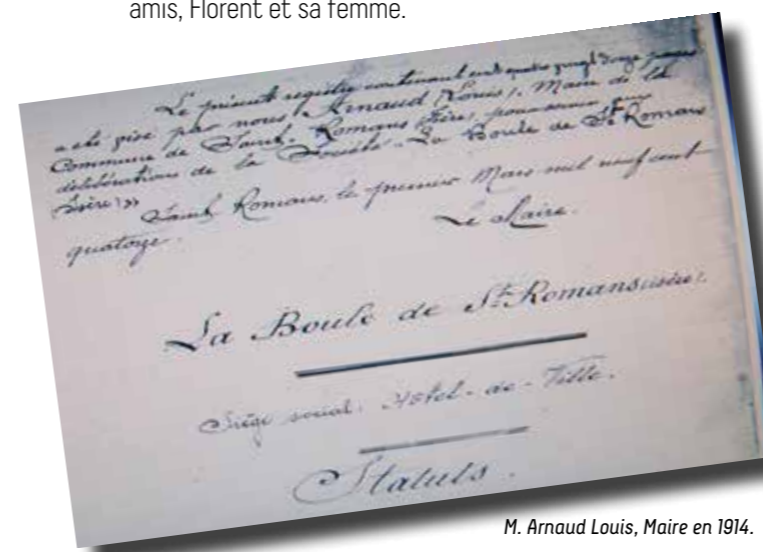 amis, Florent et sa femme.
Le présent registre contenant cent quatre vingt douze
a été par nous, Arnaud Louis, Maire de la
Commune de Saint-Romans Isère, pour servir aux
délibérations de la Société "La Boule de St Romans
Isère"
Saint Romans, le premier Mars mil neuf cent
quatorze.
Le Maire.
La Boule de St Romans (Isère).
Siège social: Hôtel-de-Ville.
Statuts.
M. Arnaud Louis, Maire en 1914.